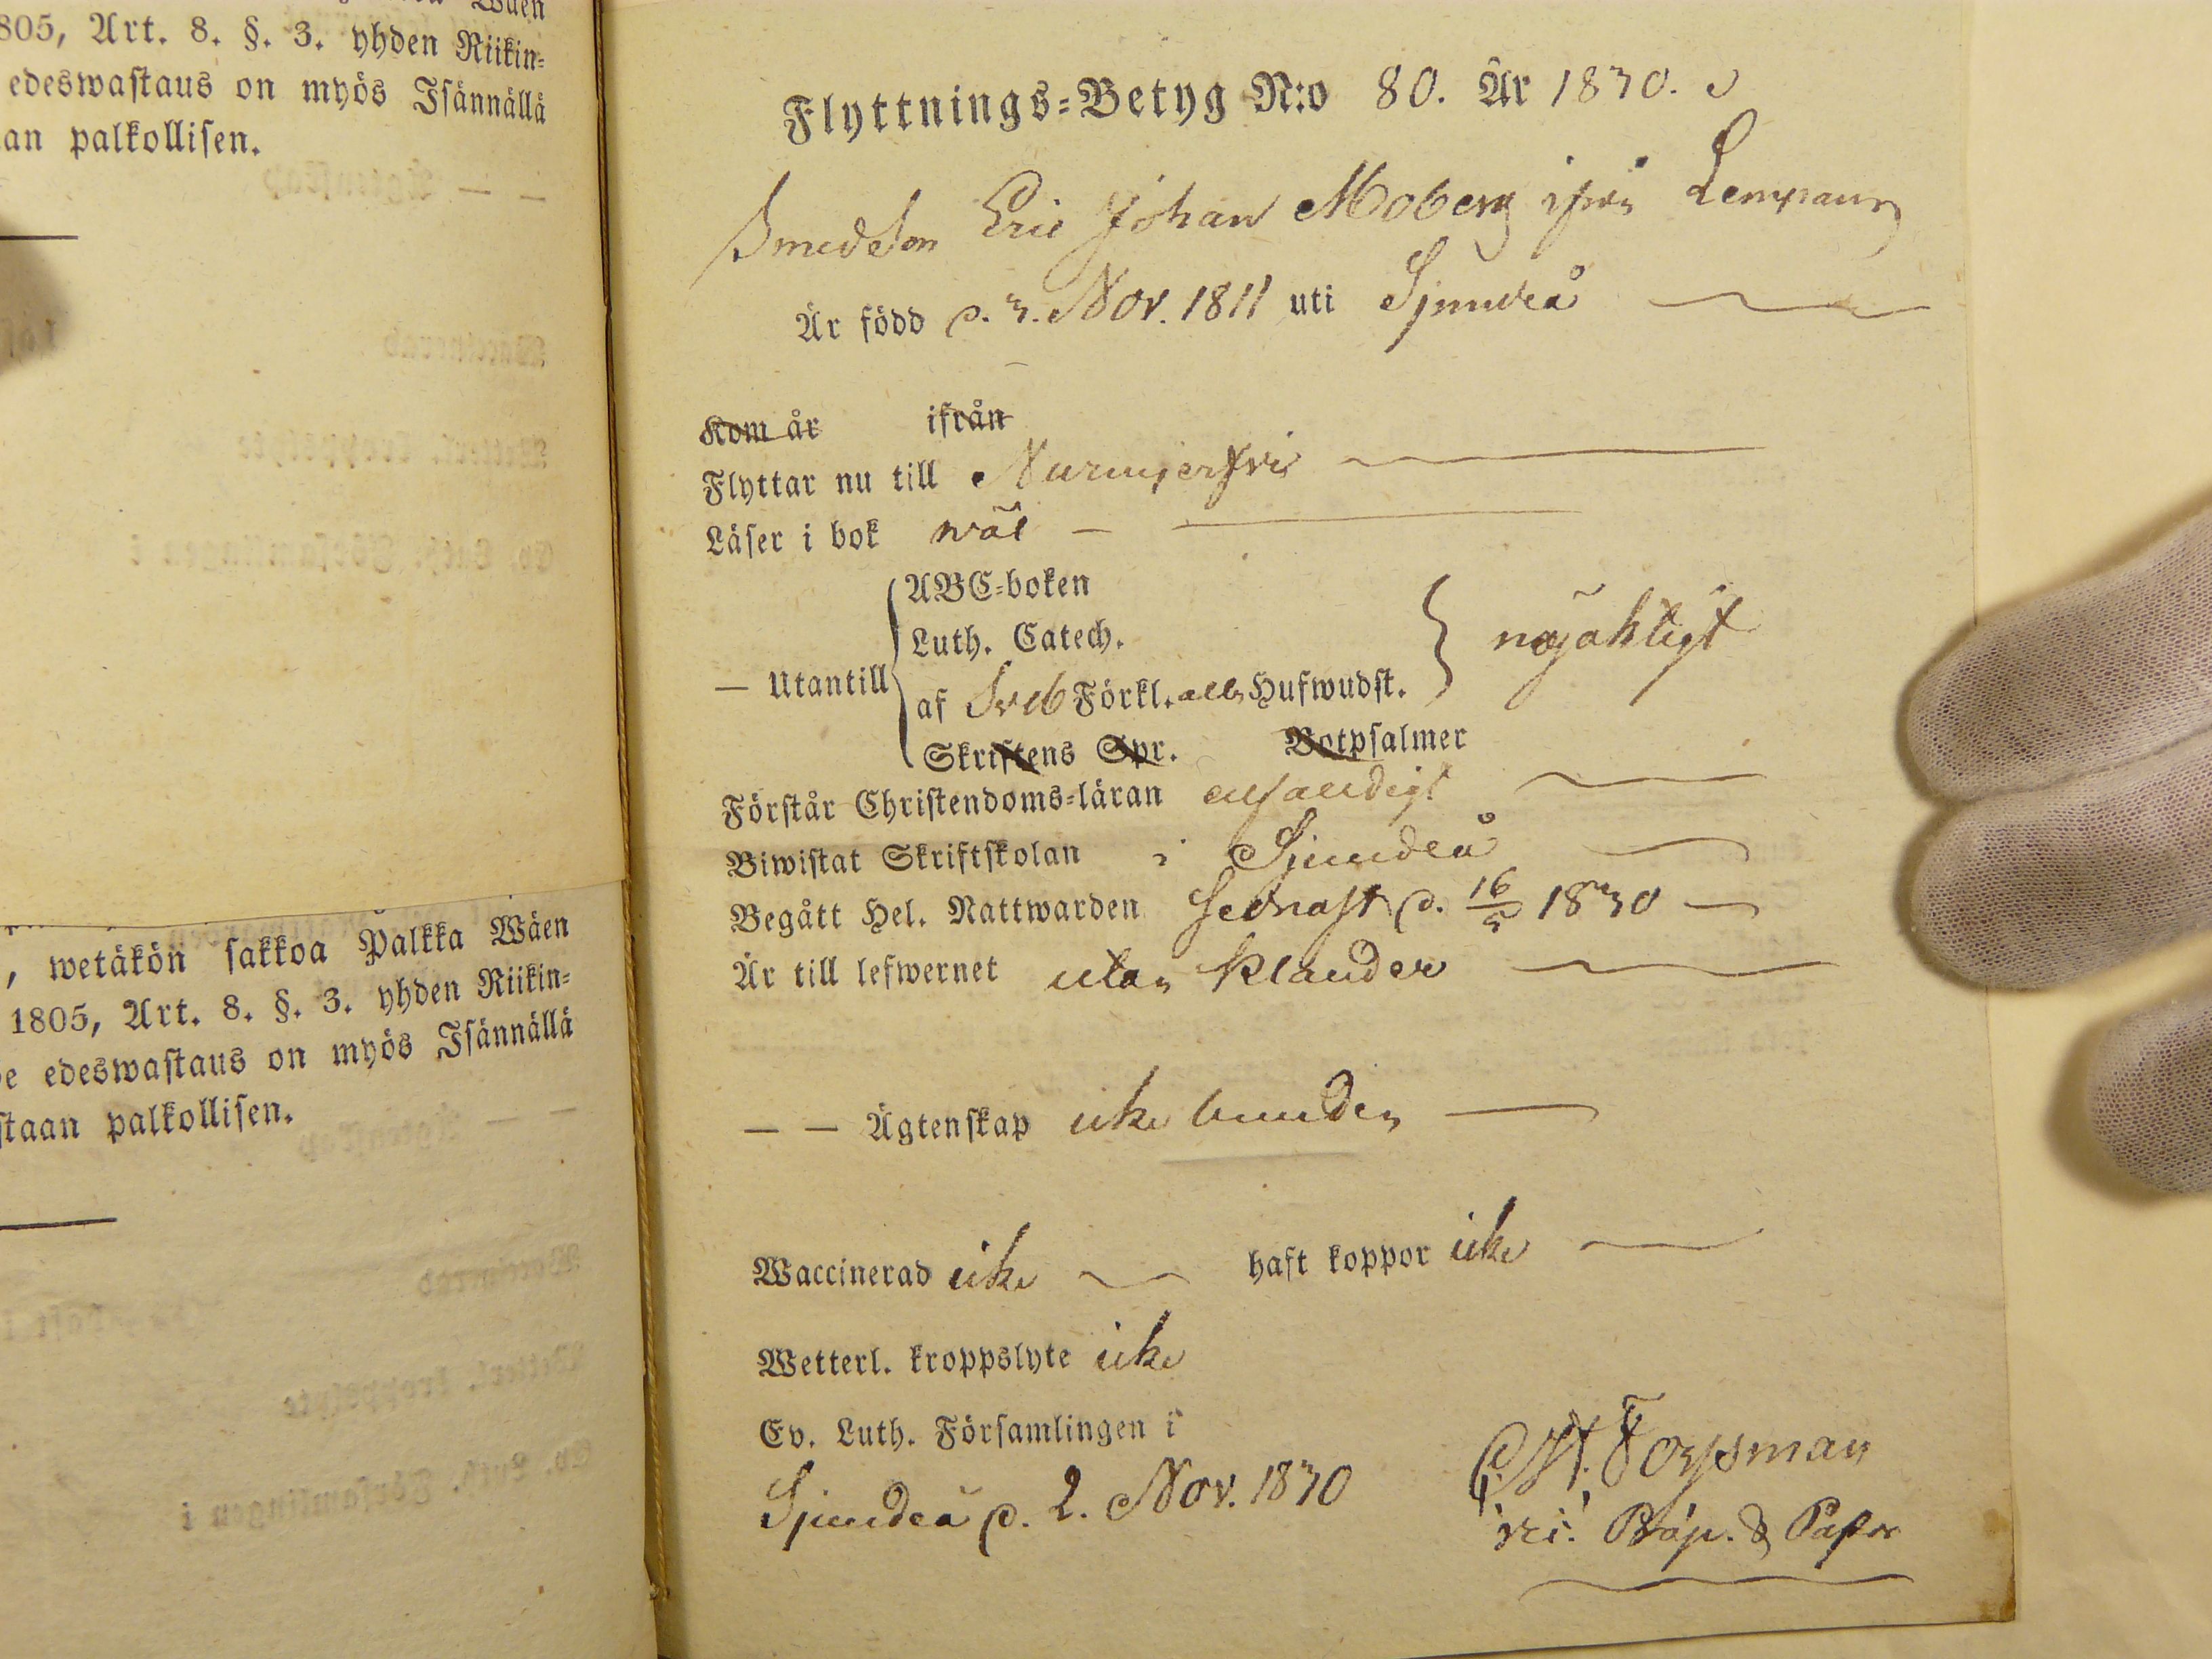 Wäen
805, Art. 8. §. 3. yhden Riikin=
edeswastaus on myös Isännällä
an palkollisen.
, wetäkön sakkoa Palkka Wäen
1805, Art. 8. §. 3. yhden Riikin=
e edeswastaus on myös Isännällä
staan palkollisen.
Flyttnings=Betyg N:o 80. År 1830.
Smedson Eric Johan Moberg ifrån
Är född d. 3. Nov. 1811 uti Sjundeå
Kom år ifrån
Flyttar nu till Nurmijerfvi
Läser i bok wäl
— Utantill
ABC=boken
Luth. Catech.
af Sveb Förkl. alla Hufwudst.
nöjaktigt
Skriftens Spr. Botpsalmer
Förstår Christendoms=läran enfaldigt
Biwistat Skriftskolan i Sjundeå
Begått Hel. Nattwarden sednast d. 16/5 1830
Är till lefwernet utan klander
— — Ägtenskap icke bunden
Waccinerad icke haft koppor icke
Wetterl. kroppslyte icke
Ev. Luth. Församlingen i
Sjundeå d. 2. Nov. 1830
Forssman
Pastor